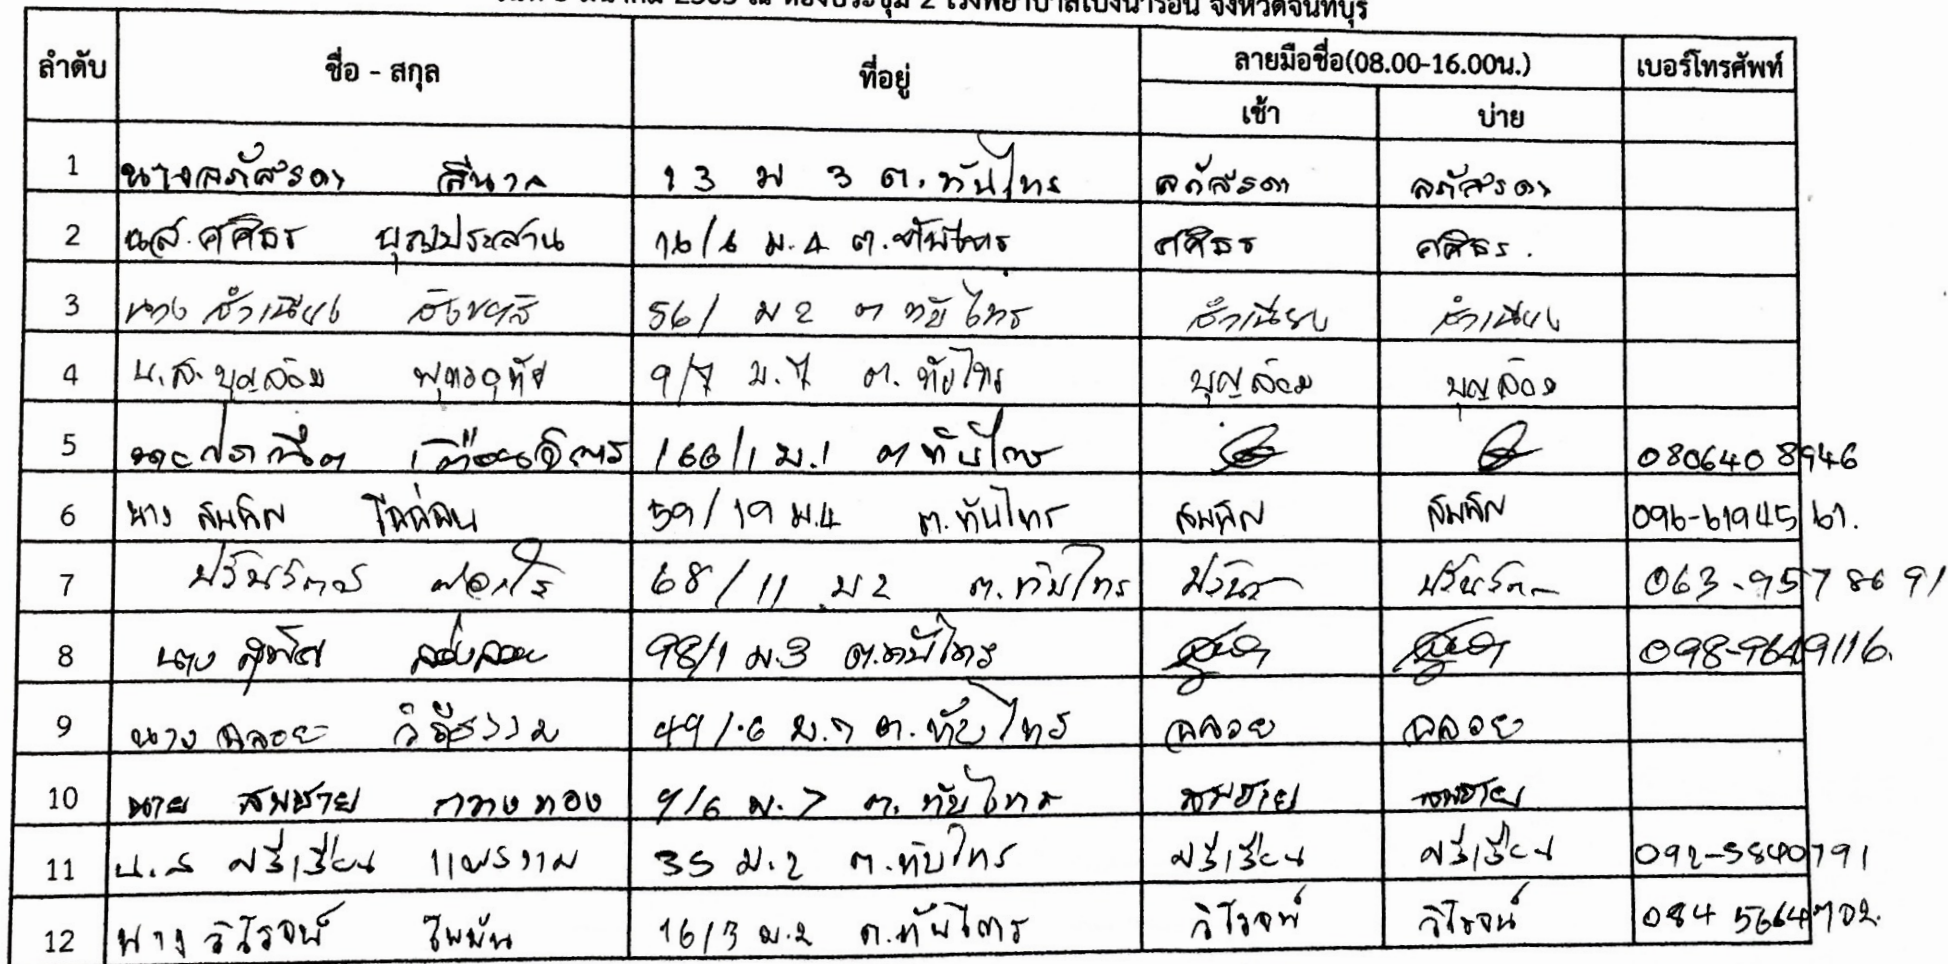 ณ ห้องประชุม 2 โรงพยาบาลโป่งน้ำร้อน จังหวัดจันทบุรี
ลำดับ ชื่อ - สกุล ที่อยู่ ลายมือชื่อ(08.00-16.00น.) เบอร์โทรศัพท์
เช้า บ่าย
1 นางลภัสรดา สีนาค 13 ม 3 ต.ทับไทร ลภัสรดา ลภัสรดา
2 นส.ศศิธร บุญประสาน 16/6 ม.4 ต.ทับไทร ศศิธร ศศิธร.
3 นาง สำเนียง 56/ ม 2 ต ทับไทร สำเนียง สำเนียง
4 น.ส. บุญล้อม พุทธอุทัย 9/7 ม.7 ต. ทับไทร บุญล้อม บุญล้อม
5 166/1 ม.1 ต ทับไทร 0806408946
6 นาง สมพิศ 59/19 ม.4 ต.ทับไทร สมพิศ สมพิศ 096-6194561.
7 68/11 ม 2 ต.ทับไทร 063-9578691
8 นาง 98/1 ม.3 ต.ทับไทร 098-9649116.
9 นาง ฉลวย วิถีธรรม 49/6 ม.7 ต.ทับไทร ฉลวย ฉลวย
10 นาย สมชาย กวางทอง 9/6 ม.7 ต. ทับไทร สมชาย สมชาย
11 น.ส ศรีเรียน แพรงาม 35 ม.2 ต.ทับไทร ศรีเรียน ศรีเรียน 092-5840791
12 นาง วิโรจน์ 16/3 ม.2 ต.ทับไทร วิโรจน์ วิโรจน์ 084 5664702.